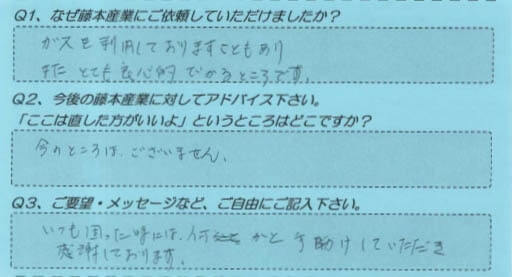 Q1、なぜ藤本産業にご依頼していただけましたか？
ガスを利用しておりますこともあり
また とても良心的であるところです。
Q2、今後の藤本産業に対してアドバイス下さい。
「ここは直した方がいいよ」というところはどこですか？
今のところは、ございません。
Q3、ご要望・メッセージなど、ご自由にご記入下さい。
いつも困った時には、何かと手助けしていただき
感謝しております。